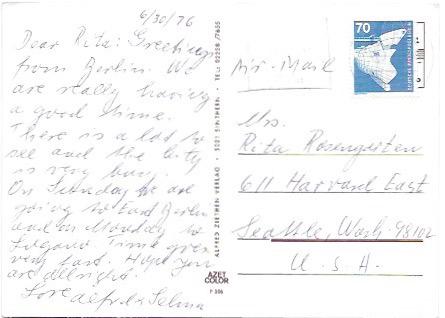 6/30/76
Dear Rita: Greetings
from Berlin. We
are really having
a good time.
There is a lot to
see and the city
is very busy.
On Sunday we are
going to East Berlin
and on Monday to
Lugano Time goes
very fast. Hope you
are allright.
Love Alfred & Selma
ALFRED ZEETHEN VERLAG · 5021 SINTHERN · TEL.: 02238/7655
AZET
COLOR
F 306
Air-Mail
70
DEUTSCHE BUNDESPOST BERLIN
Mrs.
Rita Rosengarten
611 Harvard East
Seattle, Wash. 98102
U.S.A.